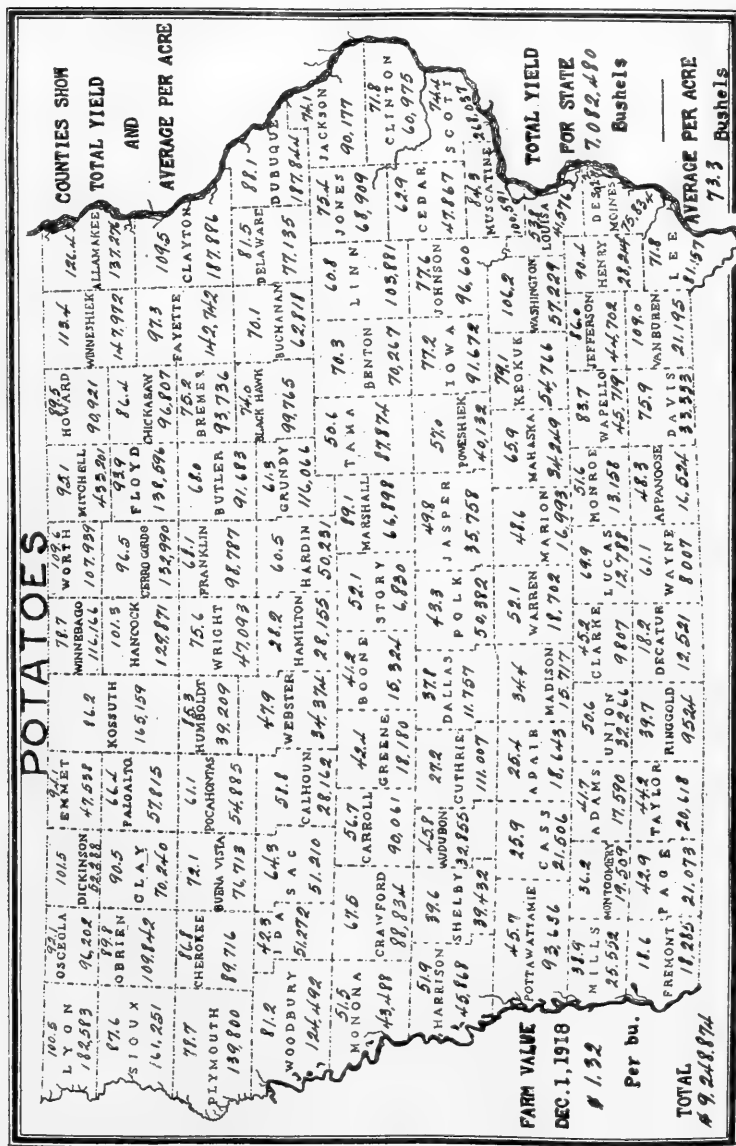 POTATOES
COUNTIES SHOW
TOTAL YIELD
AND
AVERAGE PER ACRE
100.5
LYON
182,583
92.1
OSCEOLA
96,202
101.5
DICKINSON
52,288
94.1
EMMET
47,538
78.7
WINNEBAGO
116,166
109.6
WORTH
107,939
92.1
MITCHELL
433,201
89.5
HOWARD
90,921
113.4
WINNESHIEK
147,972
126.4
ALLAMAKEE
137,276
87.6
SIOUX
161,251
89.8
OBRIEN
109,842
90.5
CLAY
70,240
66.4
PALO ALTO
57,815
86.2
KOSSUTH
165,159
101.3
HANCOCK
129,871
96.5
CERRO GORDO
132,990
93.9
FLOYD
138,596
86.4
CHICKASAW
96,807
97.3
FAYETTE
142,742
109.5
CLAYTON
187,896
78.7
PLYMOUTH
139,800
86.8
CHEROKEE
89,716
72.1
BUENA VISTA
76,713
61.1
POCAHONTAS
54,885
85.3
HUMBOLDT
39,209
75.6
WRIGHT
47,093
68.1
FRANKLIN
98,787
68.0
BUTLER
91,683
75.2
BREMER
93,736
81.2
WOODBURY
124,492
42.3
IDA
51,272
64.3
SAC
51,210
58.8
CALHOUN
28,162
47.9
WEBSTER
34,374
28.2
HAMILTON
28,155
60.5
HARDIN
50,231
61.3
GRUNDY
116,066
74.0
BLACK HAWK
99,765
70.1
BUCHANAN
62,818
81.5
DELAWARE
77,135
88.1
DUBUQUE
187,844
51.5
MONONA
43,488
67.5
CRAWFORD
88,834
56.7
CARROLL
90,061
42.4
GREENE
18,180
41.2
BOONE
15,324
52.1
STORY
6,830
89.1
MARSHALL
66,898
50.6
TAMA
87,874
70.3
BENTON
70,267
60.8
LINN
103,881
75.4
JONES
68,909
74.1
JACKSON
90,177
71.8
CLINTON
60,975
51.9
HARRISON
45,868
39.6
SHELBY
39,432
45.8
AUDUBON
32,855
27.2
GUTHRIE
111,007
37.8
DALLAS
11,757
43.3
POLK
50,382
49.8
JASPER
35,758
57.0
POWESHIEK
40,132
77.2
IOWA
91,672
77.6
JOHNSON
96,600
62.9
CEDAR
47,867
74.4
SCOTT
268,037
84.3
MUSCATINE
100,591
45.7
POTTAWATTAMIE
93,636
25.9
CASS
21,506
25.4
ADAIR
18,643
34.4
MADISON
15,717
52.1
WARREN
18,702
48.6
MARION
16,993
65.9
MAHASKA
34,249
79.1
KEOKUK
54,766
106.2
WASHINGTON
57,229
53.8
LOUISA
41,576
38.9
MILLS
25,552
36.2
MONTGOMERY
19,509
41.7
ADAMS
17,590
50.6
UNION
32,266
45.2
CLARKE
9807
69.9
LUCAS
12,788
51.6
MONROE
13,158
83.7
WAPELLO
45,719
86.0
JEFFERSON
44,702
90.4
HENRY
28,244
84.2
DES MOINES
75,834
18.6
FREMONT
18,285
42.9
PAGE
21,073
44.2
TAYLOR
20,618
39.7
RINGGOLD
9524
18.2
DECATUR
12,521
61.1
WAYNE
8007
48.3
APPANOOSE
16,524
75.9
DAVIS
33,333
109.0
VAN BUREN
21,195
71.8
LEE
81,157
FARM VALUE
DEC. 1, 1918
$ 1.32
Per bu.
TOTAL
$ 9,248,874
TOTAL YIELD
FOR STATE
7,082,480
Bushels
AVERAGE PER ACRE
73.3
Bushels